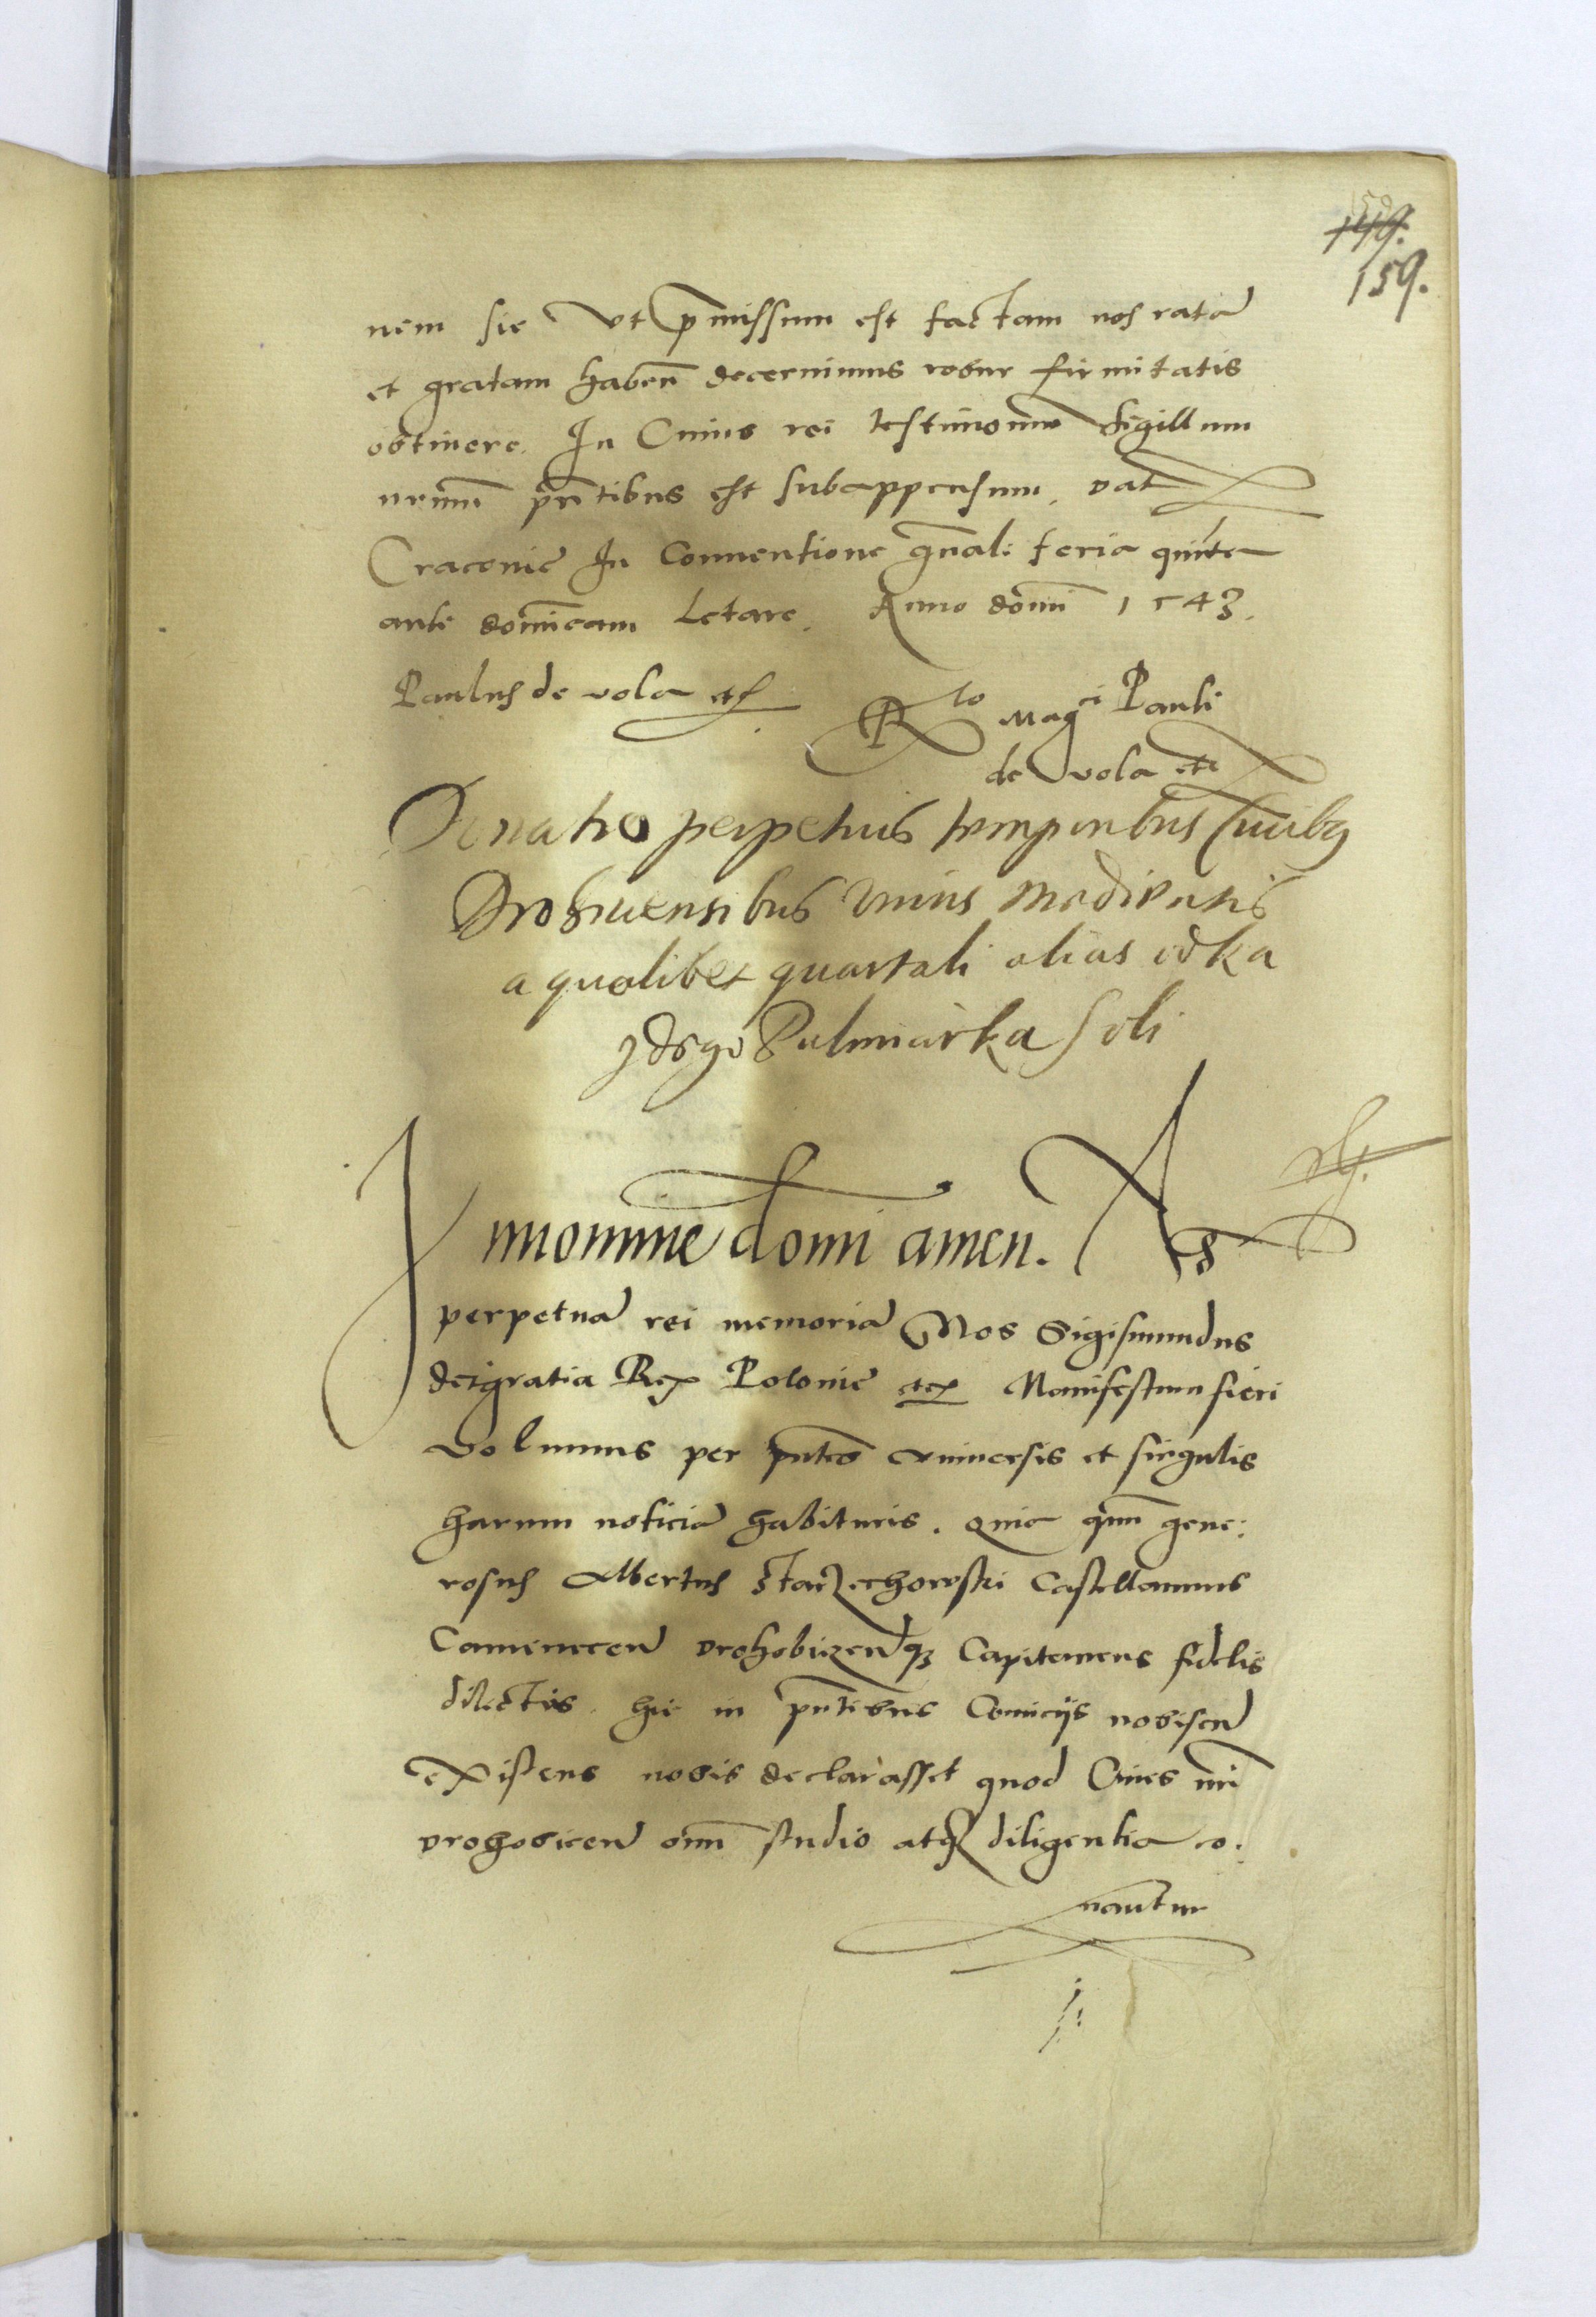 149.
159.
nem sic Vt p̄missum est factam nos ratā
et gratam habeñ decernimus robur firmitatis
obtinere. In Cuius rei testimoniū Sigillum
nrum̄ p̄ntibus est subappensum. Dat
Cracoviē In Conventione gn̄ali feria quinta
ante domīnicam Letare. Anno domī 1543.
Paulus de vola etc
Rto Magci Pauli
de vola etc
Donatio perpetuis temporibus Ciuibq
Drohiciensibus Vnius Mediputis
a quolibet quartali alias od ka
zdego Pulmiarka Soli
In nomine domi amen. Ad
perpetuā rei memoriā Nos Sigismundus
dei gratia Rex Polonie etc Manifestum fieri
Volumus per pntes vniuersis et singulis
harum noticiā habituris. Quia qum̄ gene:
rosus Albertus Starzechowski Castellanus
Camenecen̄ Drohobicen̄q Capitaneus fidelis
dilectus hic in pn̄tibus Comicijs nobiscū
existens nobis declarasset quod Ciues nr̄i
Drohobicen̄ omī studio atq diligentia co:
nantur